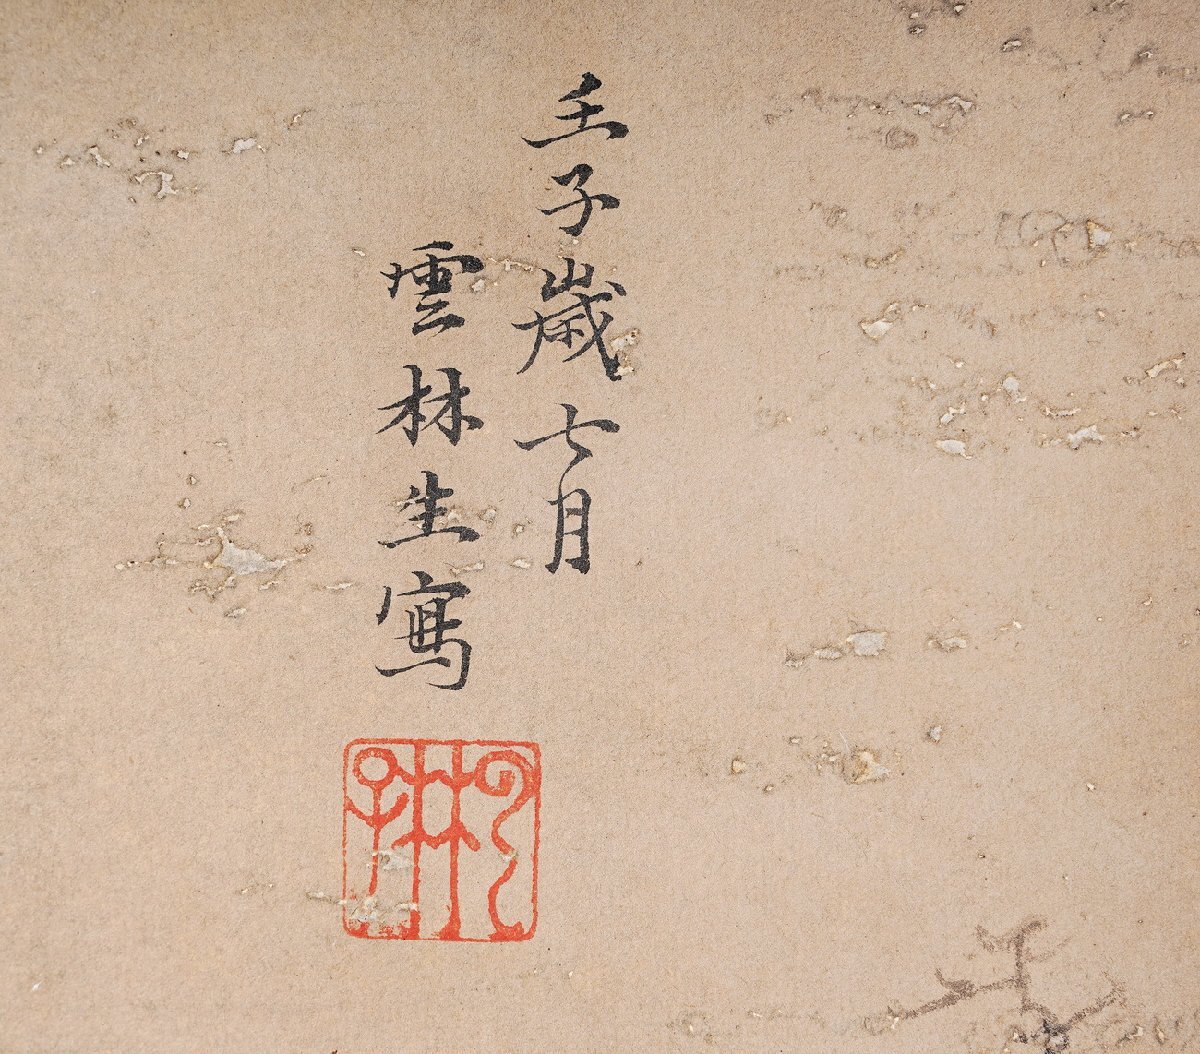 壬子歲七月
雲林生寫
云林子